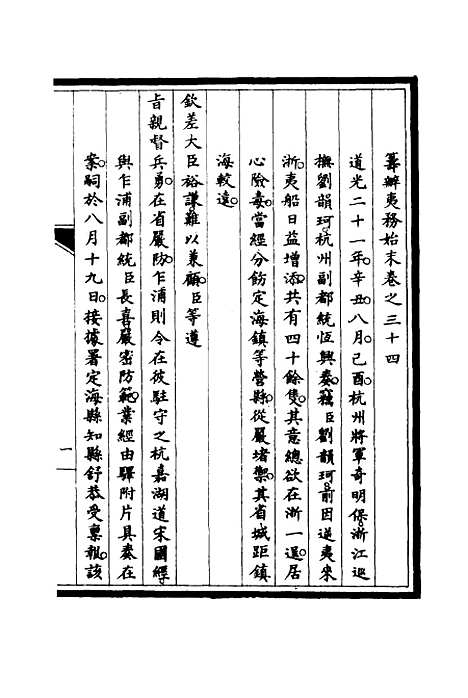 籌辦夷務始末卷之三十四
道光二十一年。辛丑。八月。己酉。杭州將軍奇明保。浙江巡
撫劉韻珂。杭州副都統恆興奏。竊臣劉韻珂。前因逆夷來
浙。夷船日益增添。共有四十餘隻。其意總欲在浙一逞。居
心險毒。當經分飭定海鎮等營縣。從嚴堵禦。其省城距鎮
海較遠。
欽差大臣裕謙難以兼顧。臣等遵
旨親督兵勇。在省嚴防。乍浦則令在彼駐守之杭嘉湖道宋國經。
與乍浦副都統臣長喜嚴密防範。業經由驛附片具奏在
案。嗣於八月十九日。接據署定海縣知縣舒恭受稟報。該
一